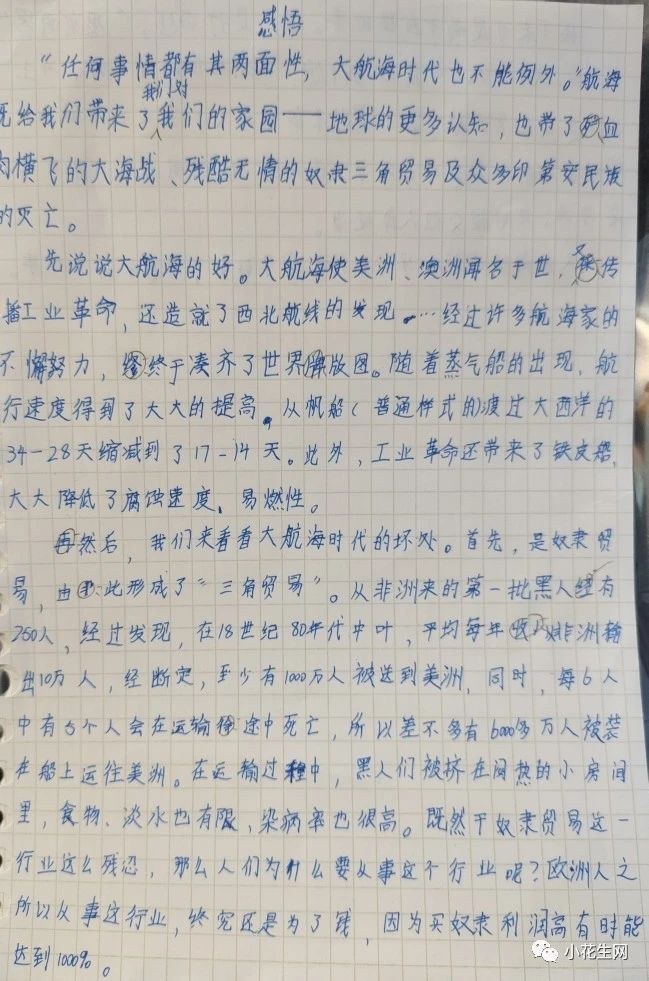 感悟
“任何事情都有其两面性，大航海时代也不能例外。”航海
既给我们带来了我们对我们的家园——地球的更多认知，也带了血
肉横飞的大海战、残酷无情的奴隶三角贸易及众多印第安民族
的灭亡。
先说说大航海的好。大航海使美洲、澳洲闻名于世，又传
播工业革命，还造就了西北航线的发现……经过许多航海家的
不懈努力，终于凑齐了世界版图。随着蒸气船的出现，航
行速度得到了大大的提高，从帆船（普通样式的）渡过大西洋的
34-28天缩减到了17-14天。此外，工业革命还带来了铁皮船，
大大降低了腐蚀速度、易燃性。
然后，我们来看看大航海时代的坏处。首先，是奴隶贸
易，由此形成了“三角贸易”。从非洲来的第一批黑人经有
250人，经过发现，在18世纪80年代中叶，平均每年从非洲输
出10万人，经断定，至少有1000万人被送到美洲，同时，每6人
中有5个人会在运输途中死亡，所以差不多有6000多万人被装
在船上运往美洲。在运输过程中，黑人们被挤在闷热的小房间
里，食物、淡水也有限，染病率也很高。既然干奴隶贸易这一
行业这么残忍，那么人们为什么要从事这个行业呢？欧洲人之
所以从事这行业，终究还是为了钱，因为买奴隶利润高有时能
达到1000%。
小花生网